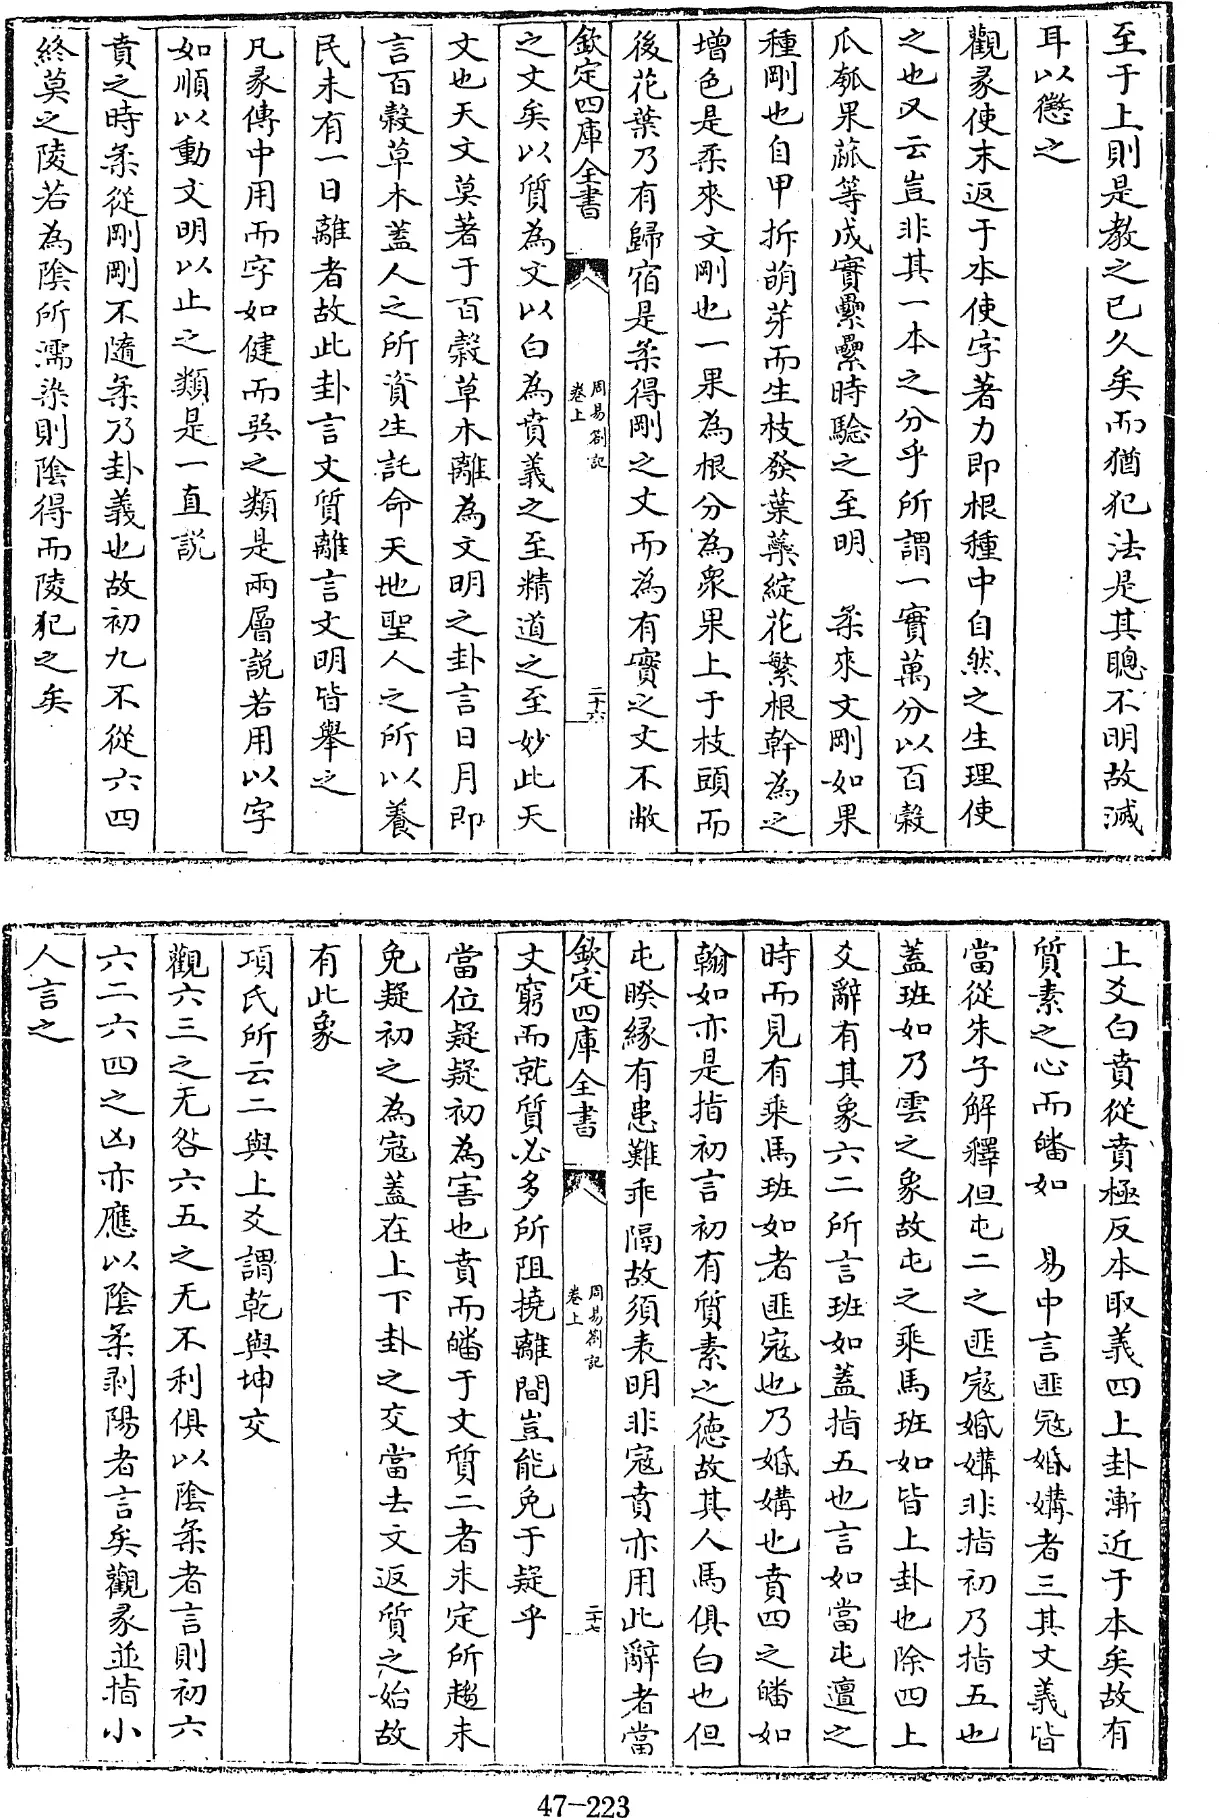 至于上則是教之已久矣而猶犯法是其聰不明故滅
耳以懲之
觀彖使末返于本使字著力即根種中自然之生理使
之也又云豈非其一本之分乎所謂一實萬分以百穀
瓜瓠果蓏等成實纍纍時驗之至明　柔來文剛如果
種剛也自甲拆萌芽而生枝發葉蘂綻花繁根幹為之
增色是柔來文剛也一果為根分為衆果上于枝頭而
後花葉乃有歸宿是柔得剛之文而為有實之文不敝
欽定四庫全書
周易劄記
卷上
二十六
之文矣以質為文以白為賁義之至精道之至妙此天
文也天文莫著于百穀草木離為文明之卦言日月即
言百穀草木蓋人之所資生託命天地聖人之所以養
民未有一日離者故此卦言文質離言文明皆舉之
凡彖傳中用而字如健而巽之類是兩層説若用以字
如順以動文明以止之類是一直説
賁之時柔從剛剛不隨柔乃卦義也故初九不從六四
終莫之陵若為陰所濡染則陰得而陵犯之矣
上爻白賁從賁極反本取義四上卦漸近于本矣故有
質素之心而皤如　易中言匪宼婚媾者三其文義皆
當從朱子解釋但屯二之匪寇婚媾非指初乃指五也
蓋班如乃雲之象故屯之乘馬班如皆上卦也除四上
爻辭有其象六二所言班如蓋指五也言如當屯邅之
時而見有乘馬班如者匪寇也乃婚媾也賁四之皤如
翰如亦是指初言初有質素之德故其人馬俱白也但
屯睽緣有患難乖隔故須表明非寇賁亦用此辭者當
欽定四庫全書
周易劄記
卷上
二十七
文窮而就質必多所阻撓離間豈能免于疑乎
當位疑疑初為害也賁而皤于文質二者未定所趨未
免疑初之為寇蓋在上下卦之交當去文返質之始故
有此象
項氏所云二與上爻謂乾與坤交
觀六三之无咎六五之无不利俱以陰柔者言則初六
六二六四之凶亦應以陰柔剥陽者言矣觀彖並指小
人言之
47-223